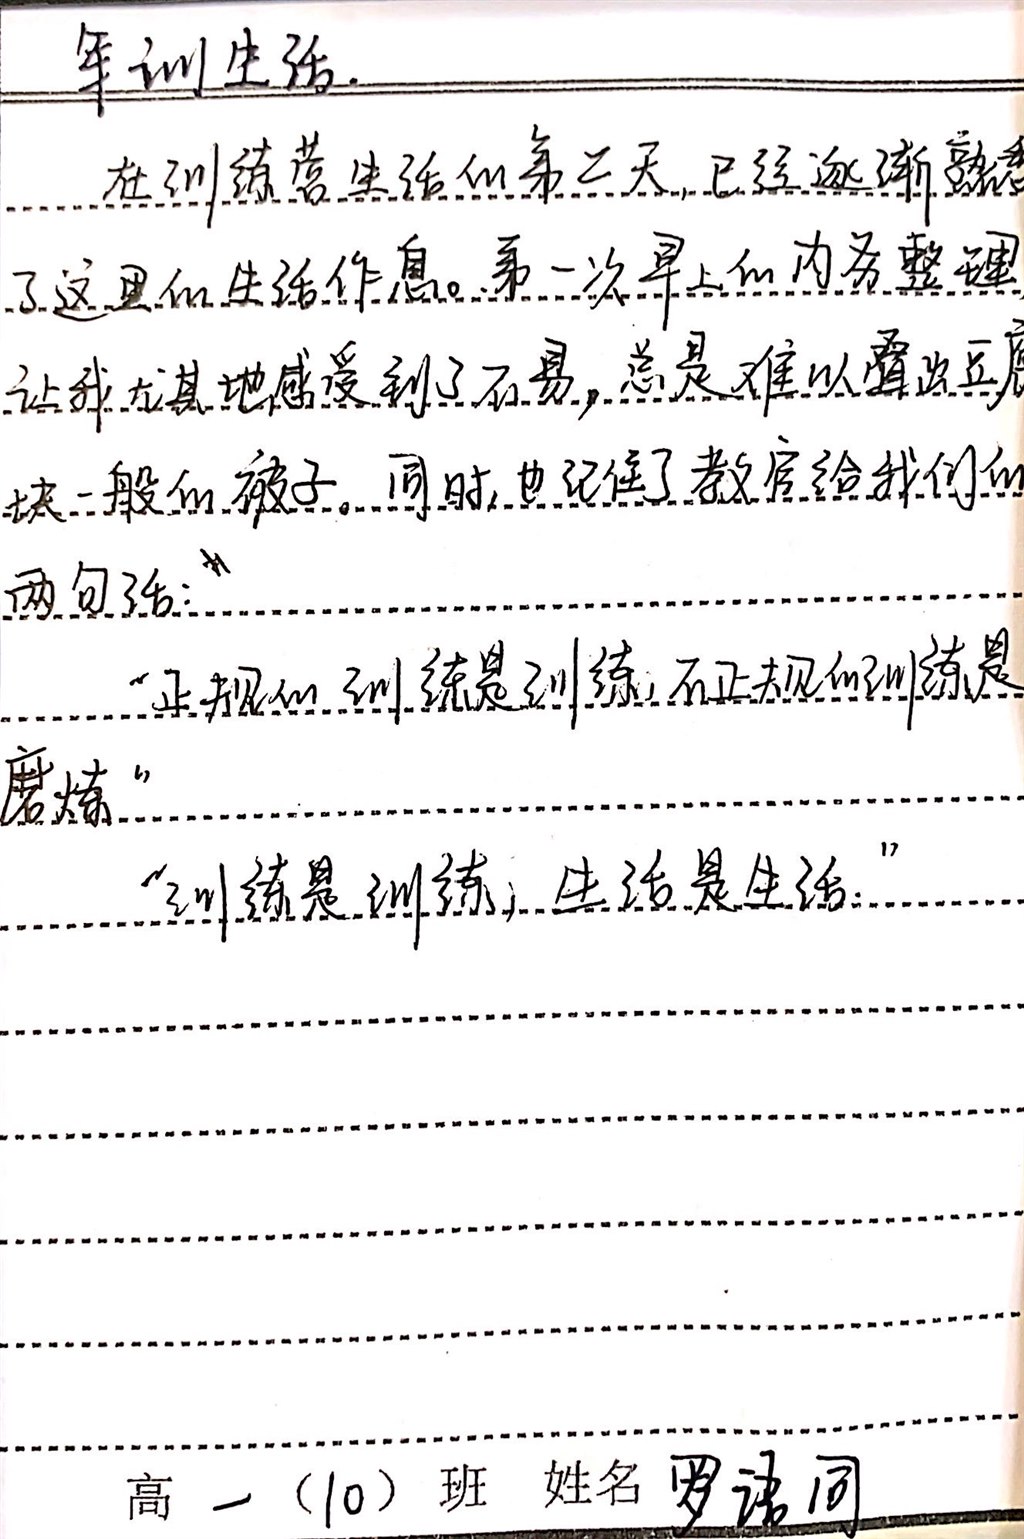 军训生活.
在训练营生活的第二天,已经逐渐熟悉
了这里的生活作息。第一次早上的内务整理,
让我尤其地感受到了不易,总是难以叠出豆腐
块一般的被子。同时,也记住了教官给我们的
两句话:
“正规的训练是训练,不正规的训练是
磨炼”
“训练是训练,生活是生活.”
高一(10)班 姓名 罗语同